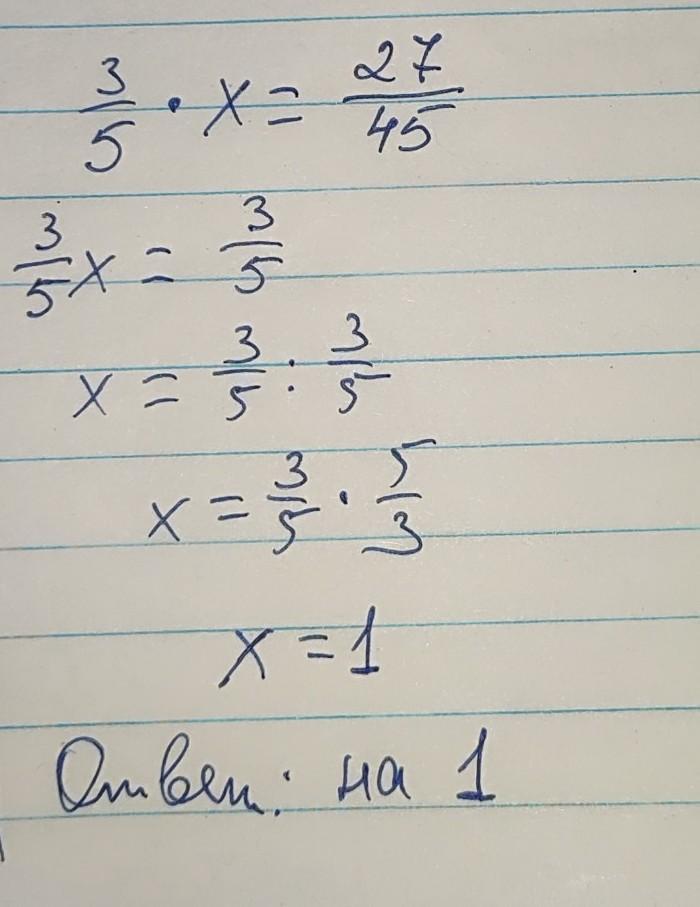 3/5 · x = 27/45
3/5 x = 3/5
x = 3/5 : 3/5
x = 3/5 · 5/3
x = 1
Ответ: на 1